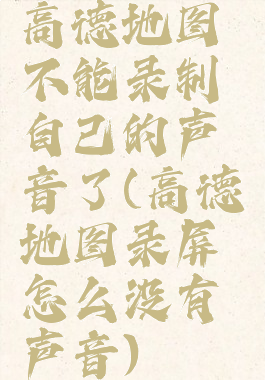 高德地图
不能录制
自己的声
音了(高德
地图录屏
怎么没有
声音)